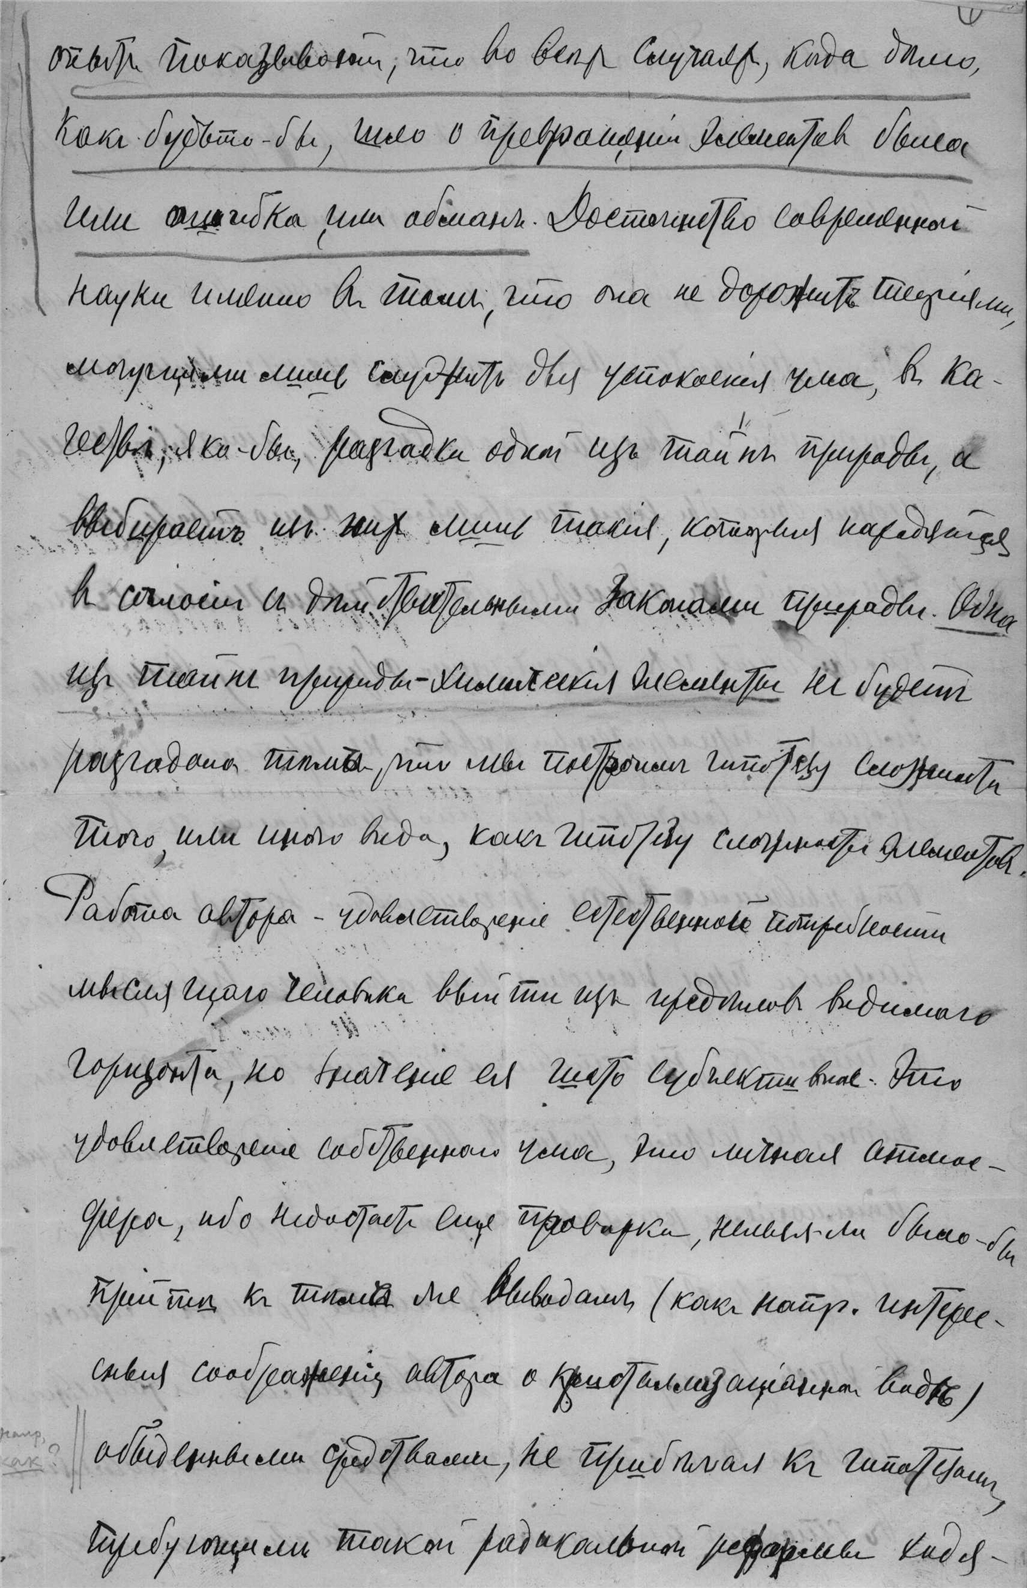 опытъ показываетъ, что во всѣхъ случаяхъ, когда дѣло,
какъ будьто-бы, шло о превращеніи элементовъ была
или ошибка или обманъ. Достоинство современной
науки именно въ томъ, что она не дорожитъ теоріями,
могущими лишь служить для успокоенія ума, въ ка-
чествѣ, яко-бы, разгадки одной изъ тайнъ природы, а
выбираетъ изъ нихъ лишь такія, которыя находятся
въ согласіи съ дѣйствительными законами природы. Одна
изъ тайнъ природы-химическія элементы не будетъ
разгадана тѣмъ, что мы построимъ гипотезу сложности
того, или иного вида, какъ гипотезу сложности элементовъ.
Работа автора - удовлетвореніе естественной потребности
мыслящаго человѣка выйти изъ предѣловъ видимаго
горизонта, но значеніе ея чисто субъективное. Это
удовлетвореніе собственнаго ума, это личная атмос-
фера, ибо недостаетъ еще провѣрки, нельзя-ли было-бы
прійти къ тѣмъ же выводамъ (какъ напр. интерес-
ныя соображенія автора о кристаллизаціонной водѣ)
напр,
как?
обыденными средствами, не прибѣгая къ гипотезамъ,
требующимъ такой радикальной реформы ходя-